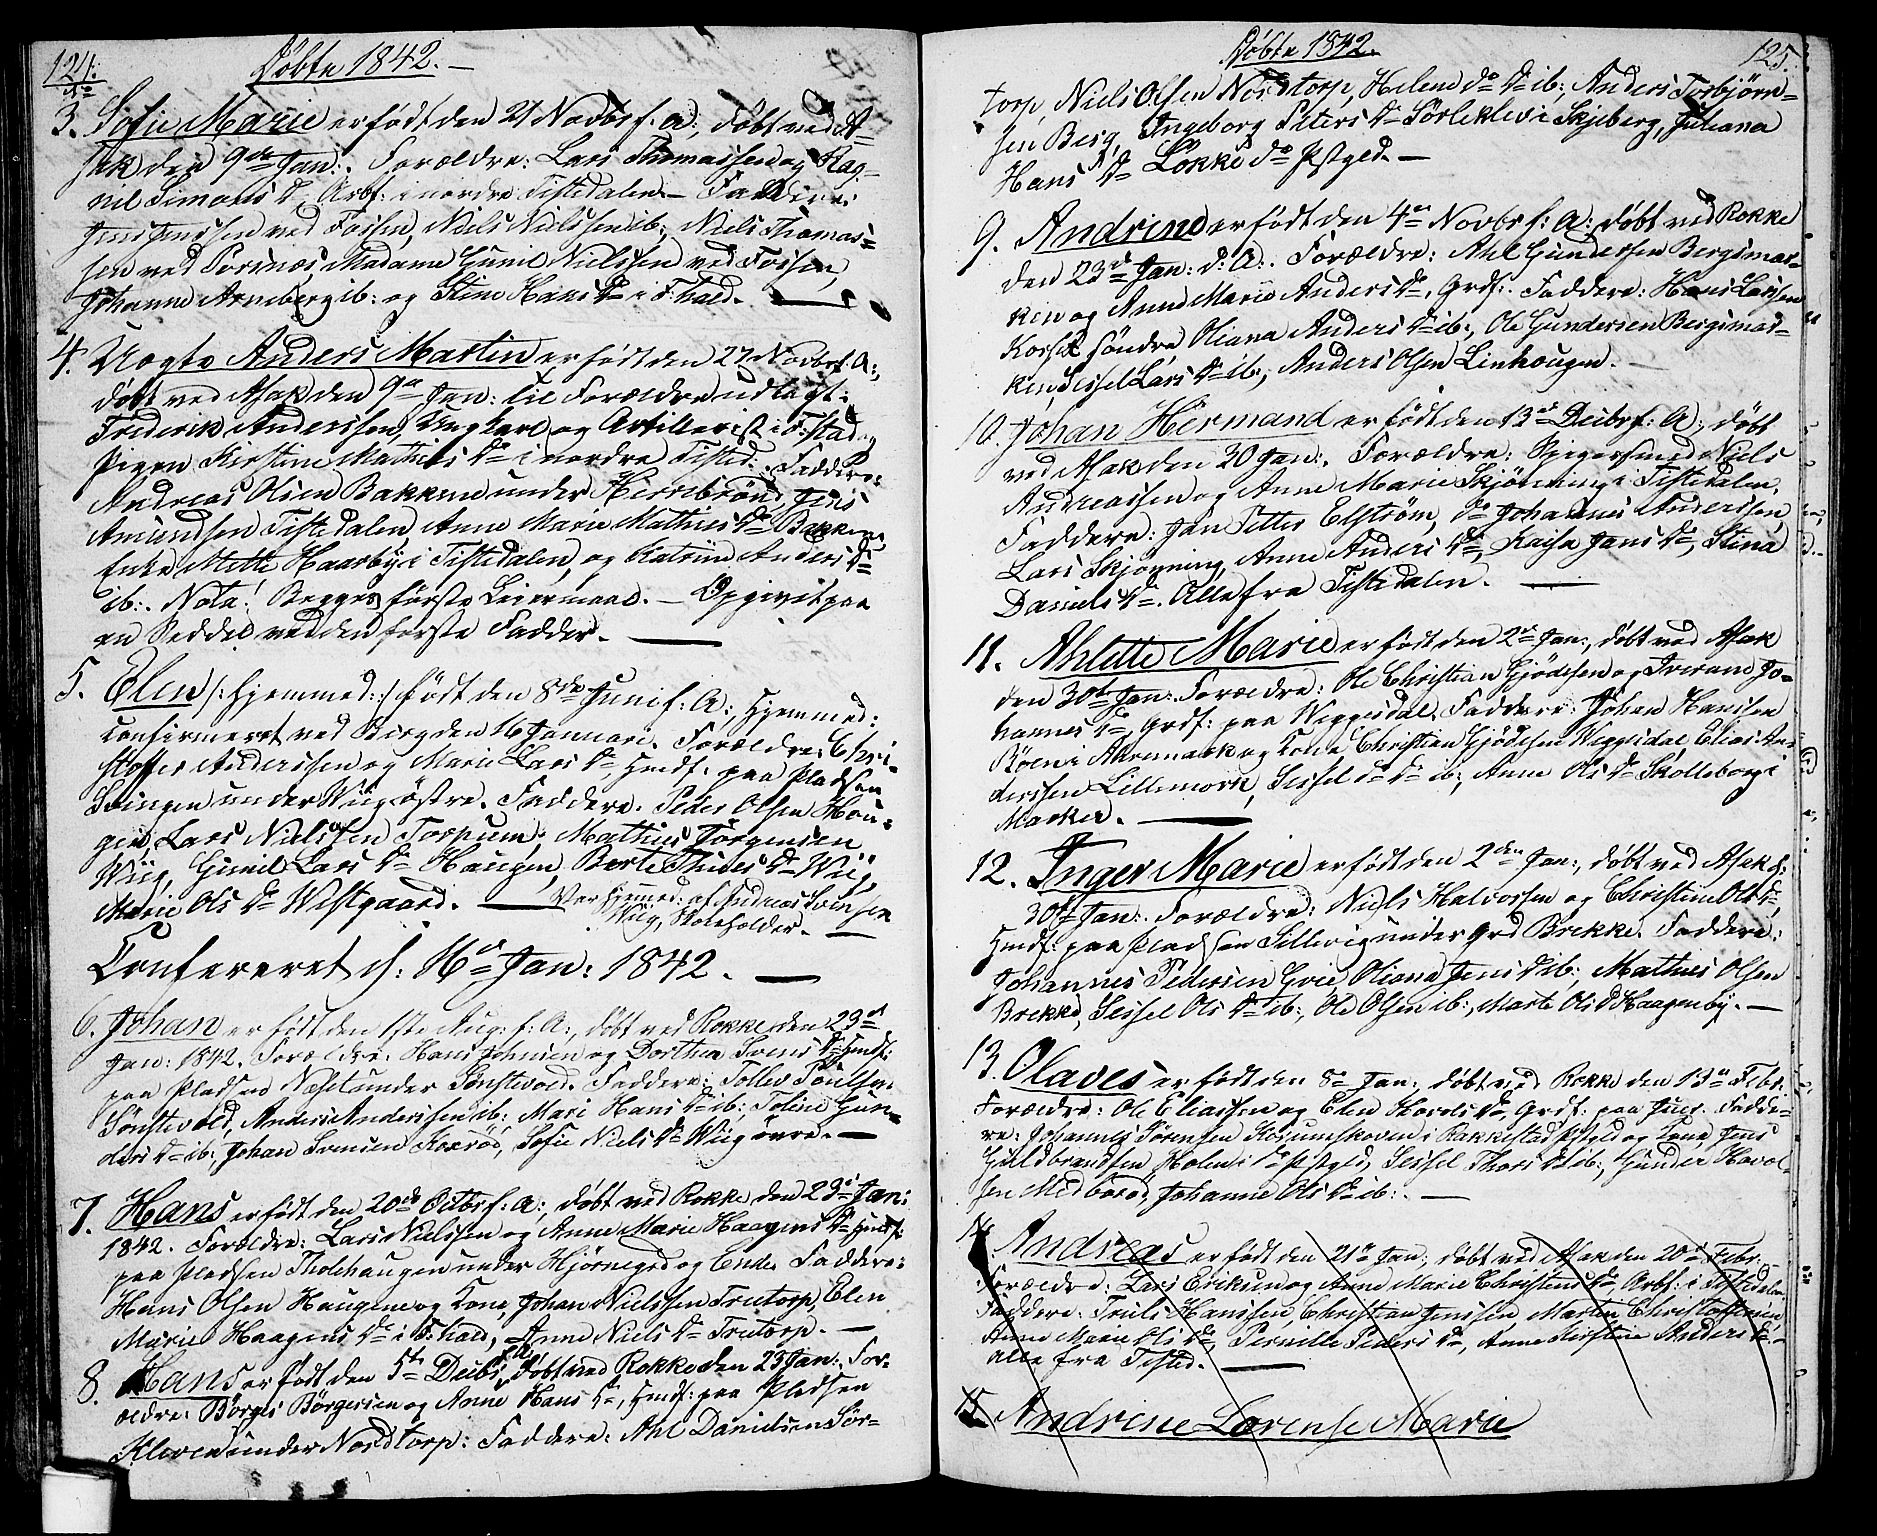 124.
Døbte 1842. —
No
3. Sofie Marie er født den 21 Novbr f: a:, døbt ved A-
sak den 9de Jan:. Forældre: Lars Thomassen og Rag-
nil Simons Dr, Arbf: i nordre Tistedalen. — Faddere:
Jens Jenssen ved Fossen, Niels Nielssen ib:, Niels Thomas-
sen ved Porsnæs, Madame Gunil Nielssen ved Fossen,
Johanne Arneberg ib: og Stine Hans Dr i F:hald. —
4. Uægte Anders Martin er født den 27 Novbr f: A:,
døbt ved Asak den 9de Jan: til Forældre udlagt:
Frederik Anderssen, Ungkarl og Artillerist i F:stad og
Pigen Kirstine Mathis Dr i nordre Tisted. Faddere:
Andreas Olsen Bakkene under Herrebrønd, Jens
Amundsen Tistedalen, Anne Marie Mathies Dr Bakkene,
Enke Mette Haarby i Tistedalen, og Katrine Anders Dr
ib:. Nota! Begges første Leiermaal. — Opgivet paa
en Seddel ved den første Fadder. —
5. Elen /: hjemmed: :/ født den 8de Juni f: A:, hjemmed:
confirmeret ved Berg den 16 Januari. Forældre: Chri-
stoffer Anderssen og Marie Lars Dr, Hmdf: paa Pladsen
Svingen under Wiig østre. Faddere: Peder Olsen Hou-
gen, Lars Nielssen Torpum, Mathies Jørgensen
Wiig, Gunil Lars Dr Haugen, Berte Thues Dr Wiig,
Marie Ols Dr Westgaard. — Var hjemmed: af Andreas Svensen
Wiig, Skoleholder. —
Confereret d: 16de Jan: 1842. —
6. Johan er født den 1ste Aug: f: A:, døbt ved Rokke den 23de
Jan: 1842. Forældre: Hans Johnsen og Dorthea Svens Dr Hmdf:
paa Pladsen Næset under Sønstevold. Faddere: Tollev Poulsen
Sønstevold, Anders Anderssen ib:, Mari Hans Dr ib:, Toline Gun-
ders Dr ib:, Johan Svensen Kaxrød, Sofie Niels Dr Wiig øvre. —
7. Hans er født den 20de Octbr f: A:, døbt ved Rokke den 23de Jan:
1842. Forældre: Lars Nielssen og Anne Marie Haagens Dr Hmdf:
paa Pladsen Tholehaugen under Hjørnegrd og Ende. Faddere:
Hans Olsen Haugene og Kone, Johan Nielssen Trutorp, Elen
Marie Haagens Dr i F:hald, Anne Niels Dr Trutorp. —
8. Hans er født den 5te Decbr f: A:, døbt ved Rokke den 23 Jan:. For-
ældre: Børger Børgersen og Anne Hans Dr, Hmdf: paa Pladsen
Kleven under Nordtorp: Faddere: Ahl Danielsen Sør-
Døbte 1842.
125.
torp, Niels Olsen Nordtorp, Helene do Dr ib:, Anders Torbjørn-
sen Berg, Ingeborg Peters Dr Sørleklev i Skjeberg, Juliana
Hans Dr Løkke do Pstgld. —
9. Andrine er født den 4de Novbr f: A: døbt ved Rokke
den 23de Jan: d: A:. Forældre: Ahl Gundersen Bergsmar-
ken og Anne Marie Anders Dr, Grdf:. Faddere: Hans Larssen
Kosset søndre, Oliana Anders Dr ib:, Ole Gundersen Bergsmar-
ken, Sissel Lars Dr ib:, Anders Olsen Linhougen. —
10. Johan Hermand er født den 13de Decbr f: A:, døbt
ved Asak den 30 Jan:. Forældre: Spigersmed Niels
Andreassen og Anne Marie Skjønning i Tistedalen.
Faddere: Jan Petter Elstrøm, Do Johannes Anderssen,
Lars Skjønning, Anne Anders Dr, Kaisa Jans Dr, Stina
Daniels Dr. Alle fra Tistedalen. —
11. Ahlette Marie er født den 2de Jan:, døbt ved Asak
den 30te Jan:. Forældre: Ole Christian Gjødesen og Iverane Jo-
hannes Dr, Grdf: paa Weggesdal. Faddere: Johan Hanssen
Røen i Aremark og Kone, Christian Gjødesen Weggesdal, Elias An-
derssen Lillemork, Sissel do Dr ib:, Anne Ols Dr Skolleborg i
Marker. —
12. Inger Marie er født den 2den Jan:, døbt ved Asak d:
30te Jan:. Forældre: Niels Halvorssen og Christine Ols Dr,
Hmdf: paa Pladsen Sillevig under Grd Brekke. Faddere:
Johannes Pedersen Gvie, Oliana Jens Dr ib:, Mathies Olsen
Brekke, Sissel Ols Dr ib:, Ole Olsen ib:, Marte Ols D Haagenby. —
13. Olaves er født den 8de Jan:, døbt ved Rokke den 13de Febr.
Forældre: Ole Eliassen og Elen Havols Dr, Grdf: paa Juer. Fadde-
re: Johannes Sørensen Kosumskoven i Rakkestad Pstgld og Kone, Jens
Guldbrandsen Holen i do Pstgld, Sissel Thors Dr ib:, Gunder Havol-
sen Medbørød, Johanne Ols Dr ib:. —
14. Andreas er født den 21de Jan:, døbt ved Asak den 20de Febr.
Forældre: Lars Eriksen og Anne Marie Christens Dr, Arbf: i Tistedalen.
Faddere: Truls Hanssen, Christian Jenssen, Martin Christoffersen,
Anne Marie Ols Dr, Pernille Peders Dr, Anne Kirstine Anders Dr. —
alle fra Tisted. —
15. Andrine Lorense Marie